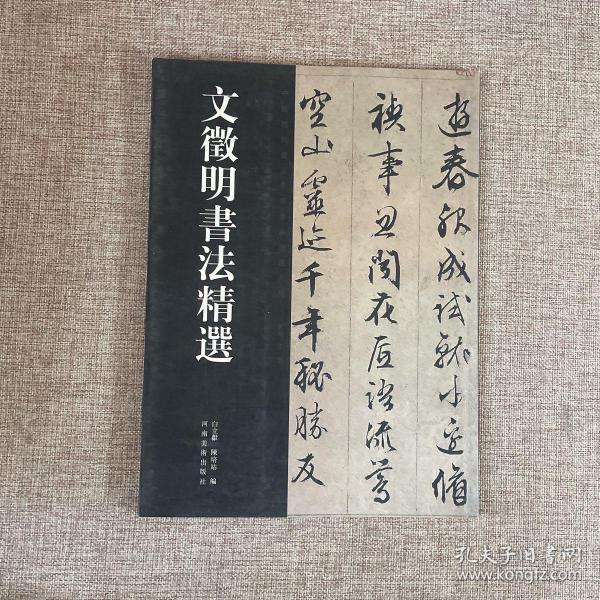 文徵明書法精選
白立獻 陳培站 編
河南美術出版社
遊春服成試試小逕脩
禊事丑閏花匝語流鶯
空山靈迹千年秘勝友
孔夫子旧书网
www.kongfz.com